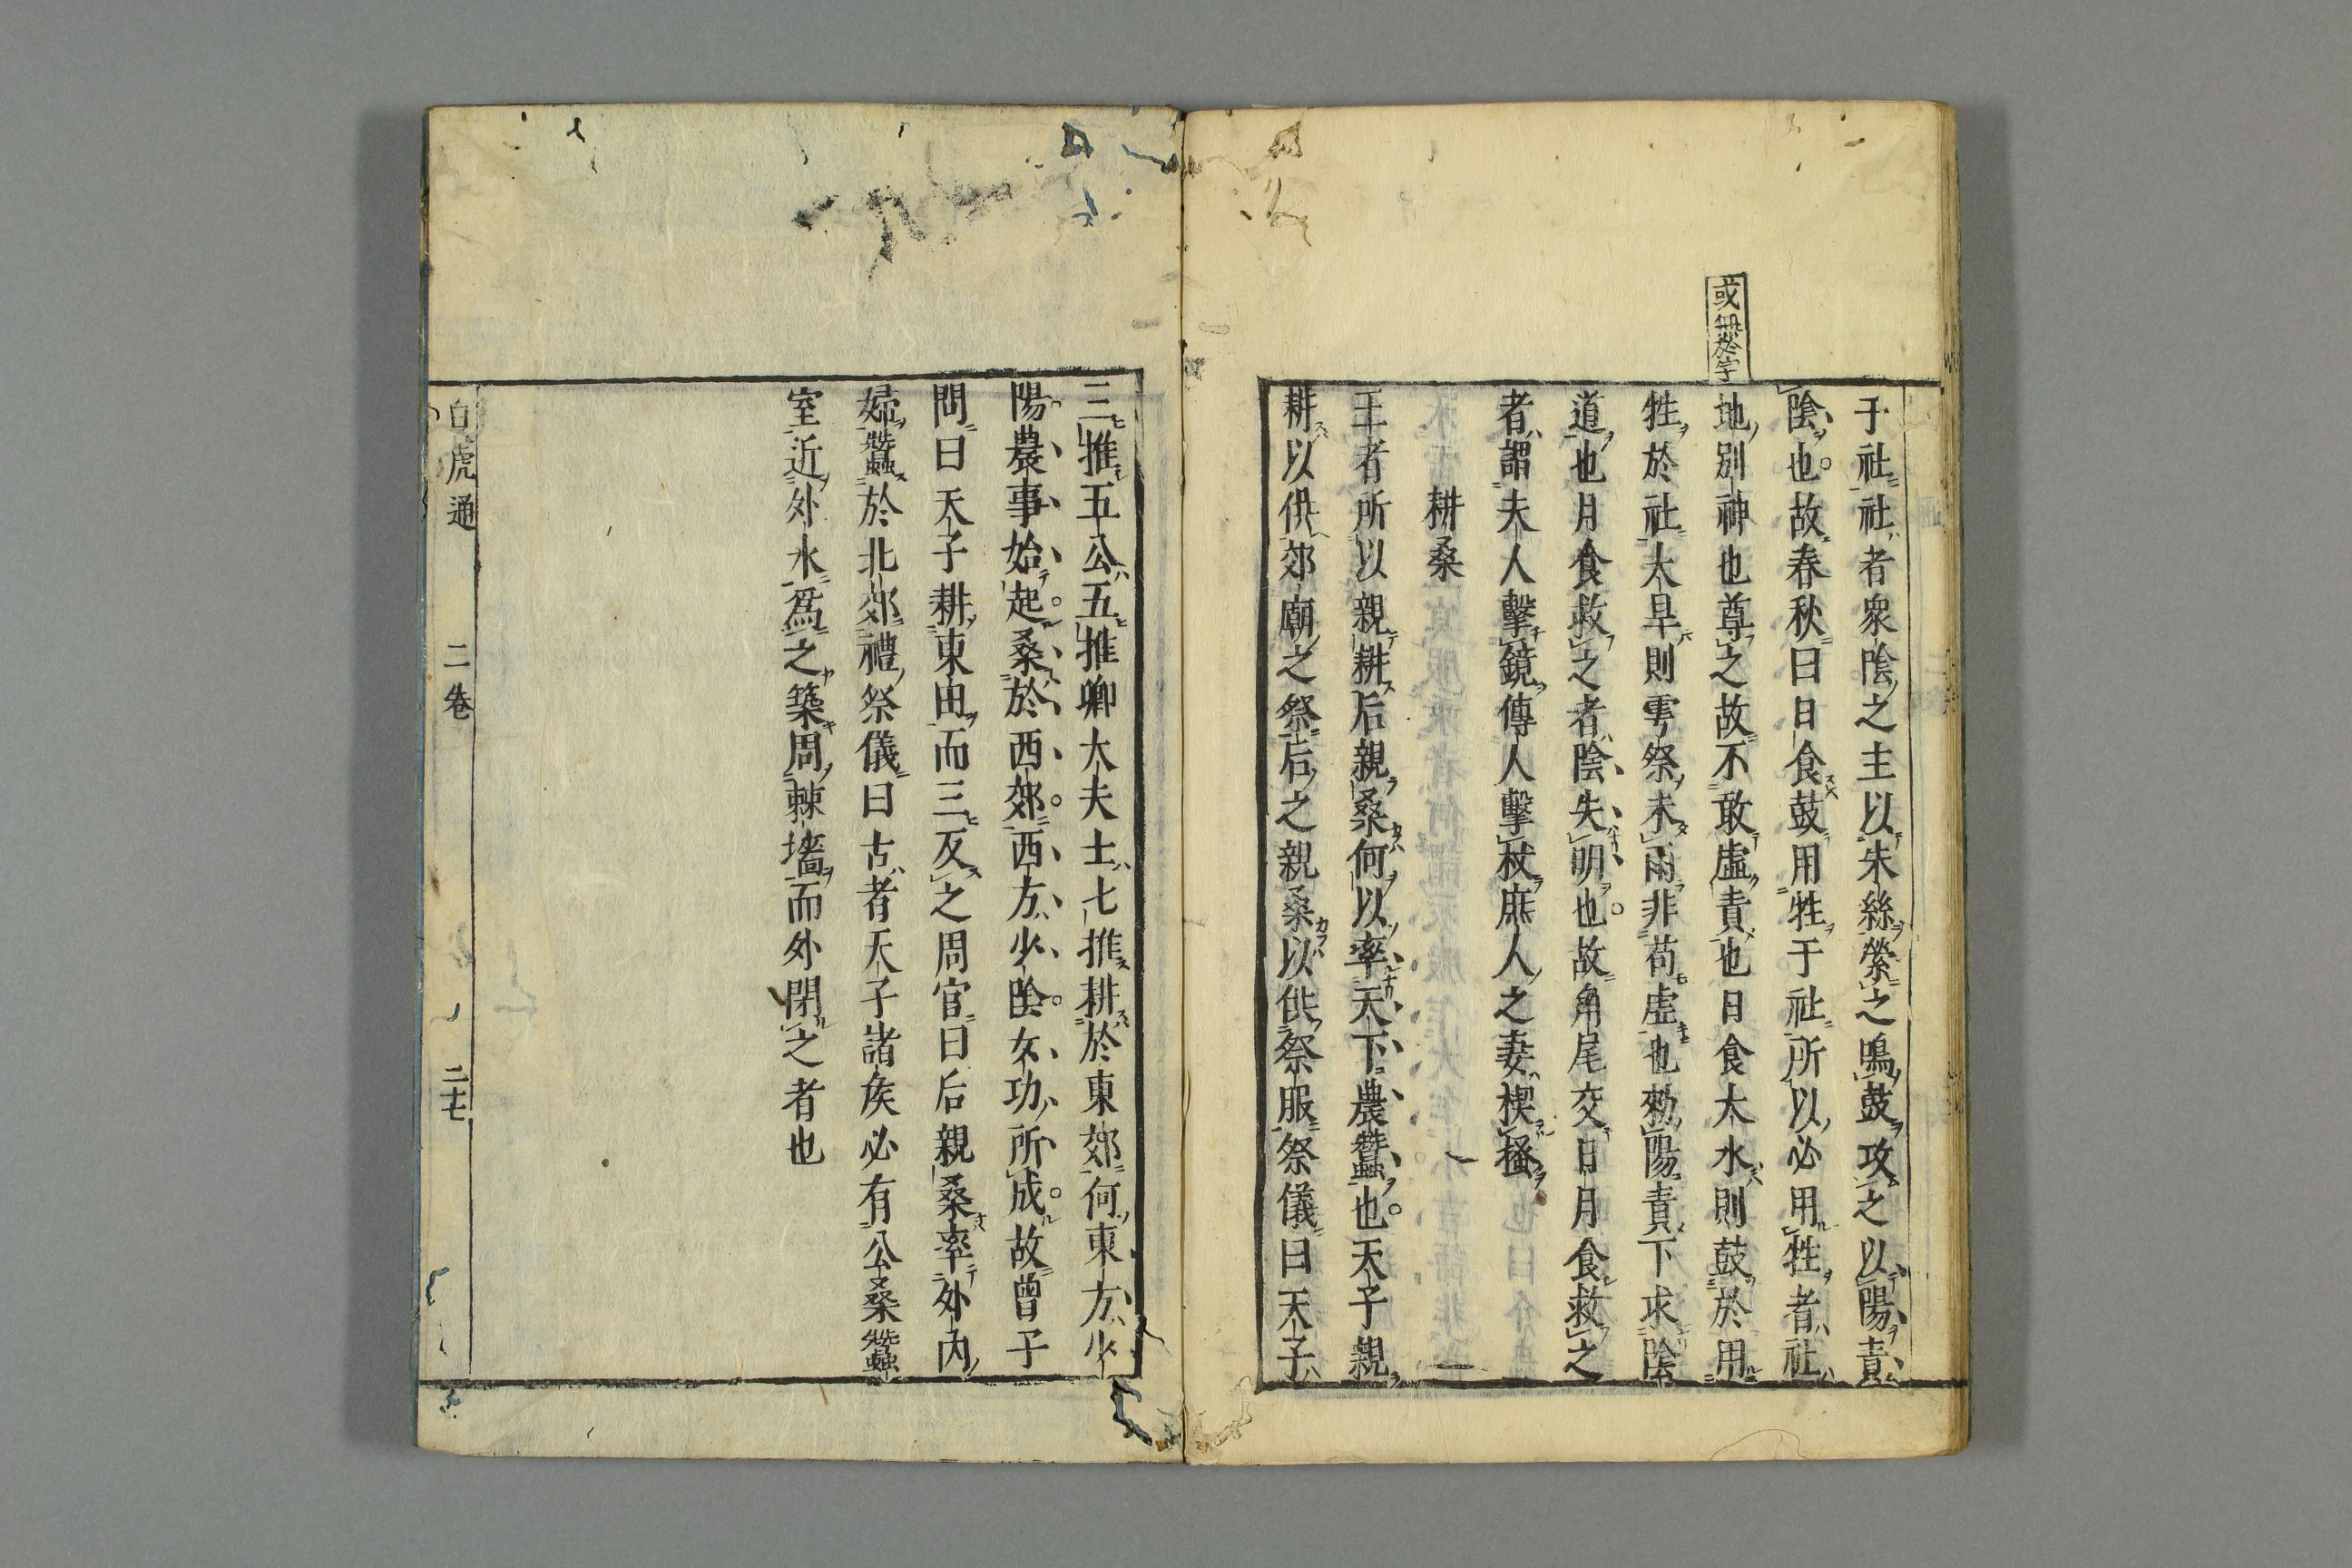 于社社者衆陰之主以朱絲縈之鳴鼓攻之以陽責
陰也故春秋曰日食鼓用牲于社所以必用牲者社
或無於字
地別神也尊之故不敢虛責也日食大水則鼓於用
牲於社大旱則雩祭未雨非苟虛也勑陽責下求陰
道也月食救之者陰失明也故角尾交日月食救之
者謂夫人擊鏡傳人擊杖庶人之妻楔搔
耕桑
王者所以親耕后親桑何以率天下農蠶也天子親
耕以供郊廟之祭后之親桑以供祭服祭儀曰天子
三推五公五推卿大夫士七推耕於東郊何東方少
陽農事始起桑於西郊西方少陰女功所成故曾子
問曰天子耕東田而三反之周官曰后親桑率外內
婦蠶於北郊禮祭儀曰古者天子諸侯必有公桑蠶
室近外水爲之築周棘墻而外閉之者也
白虎通 二卷 二十七